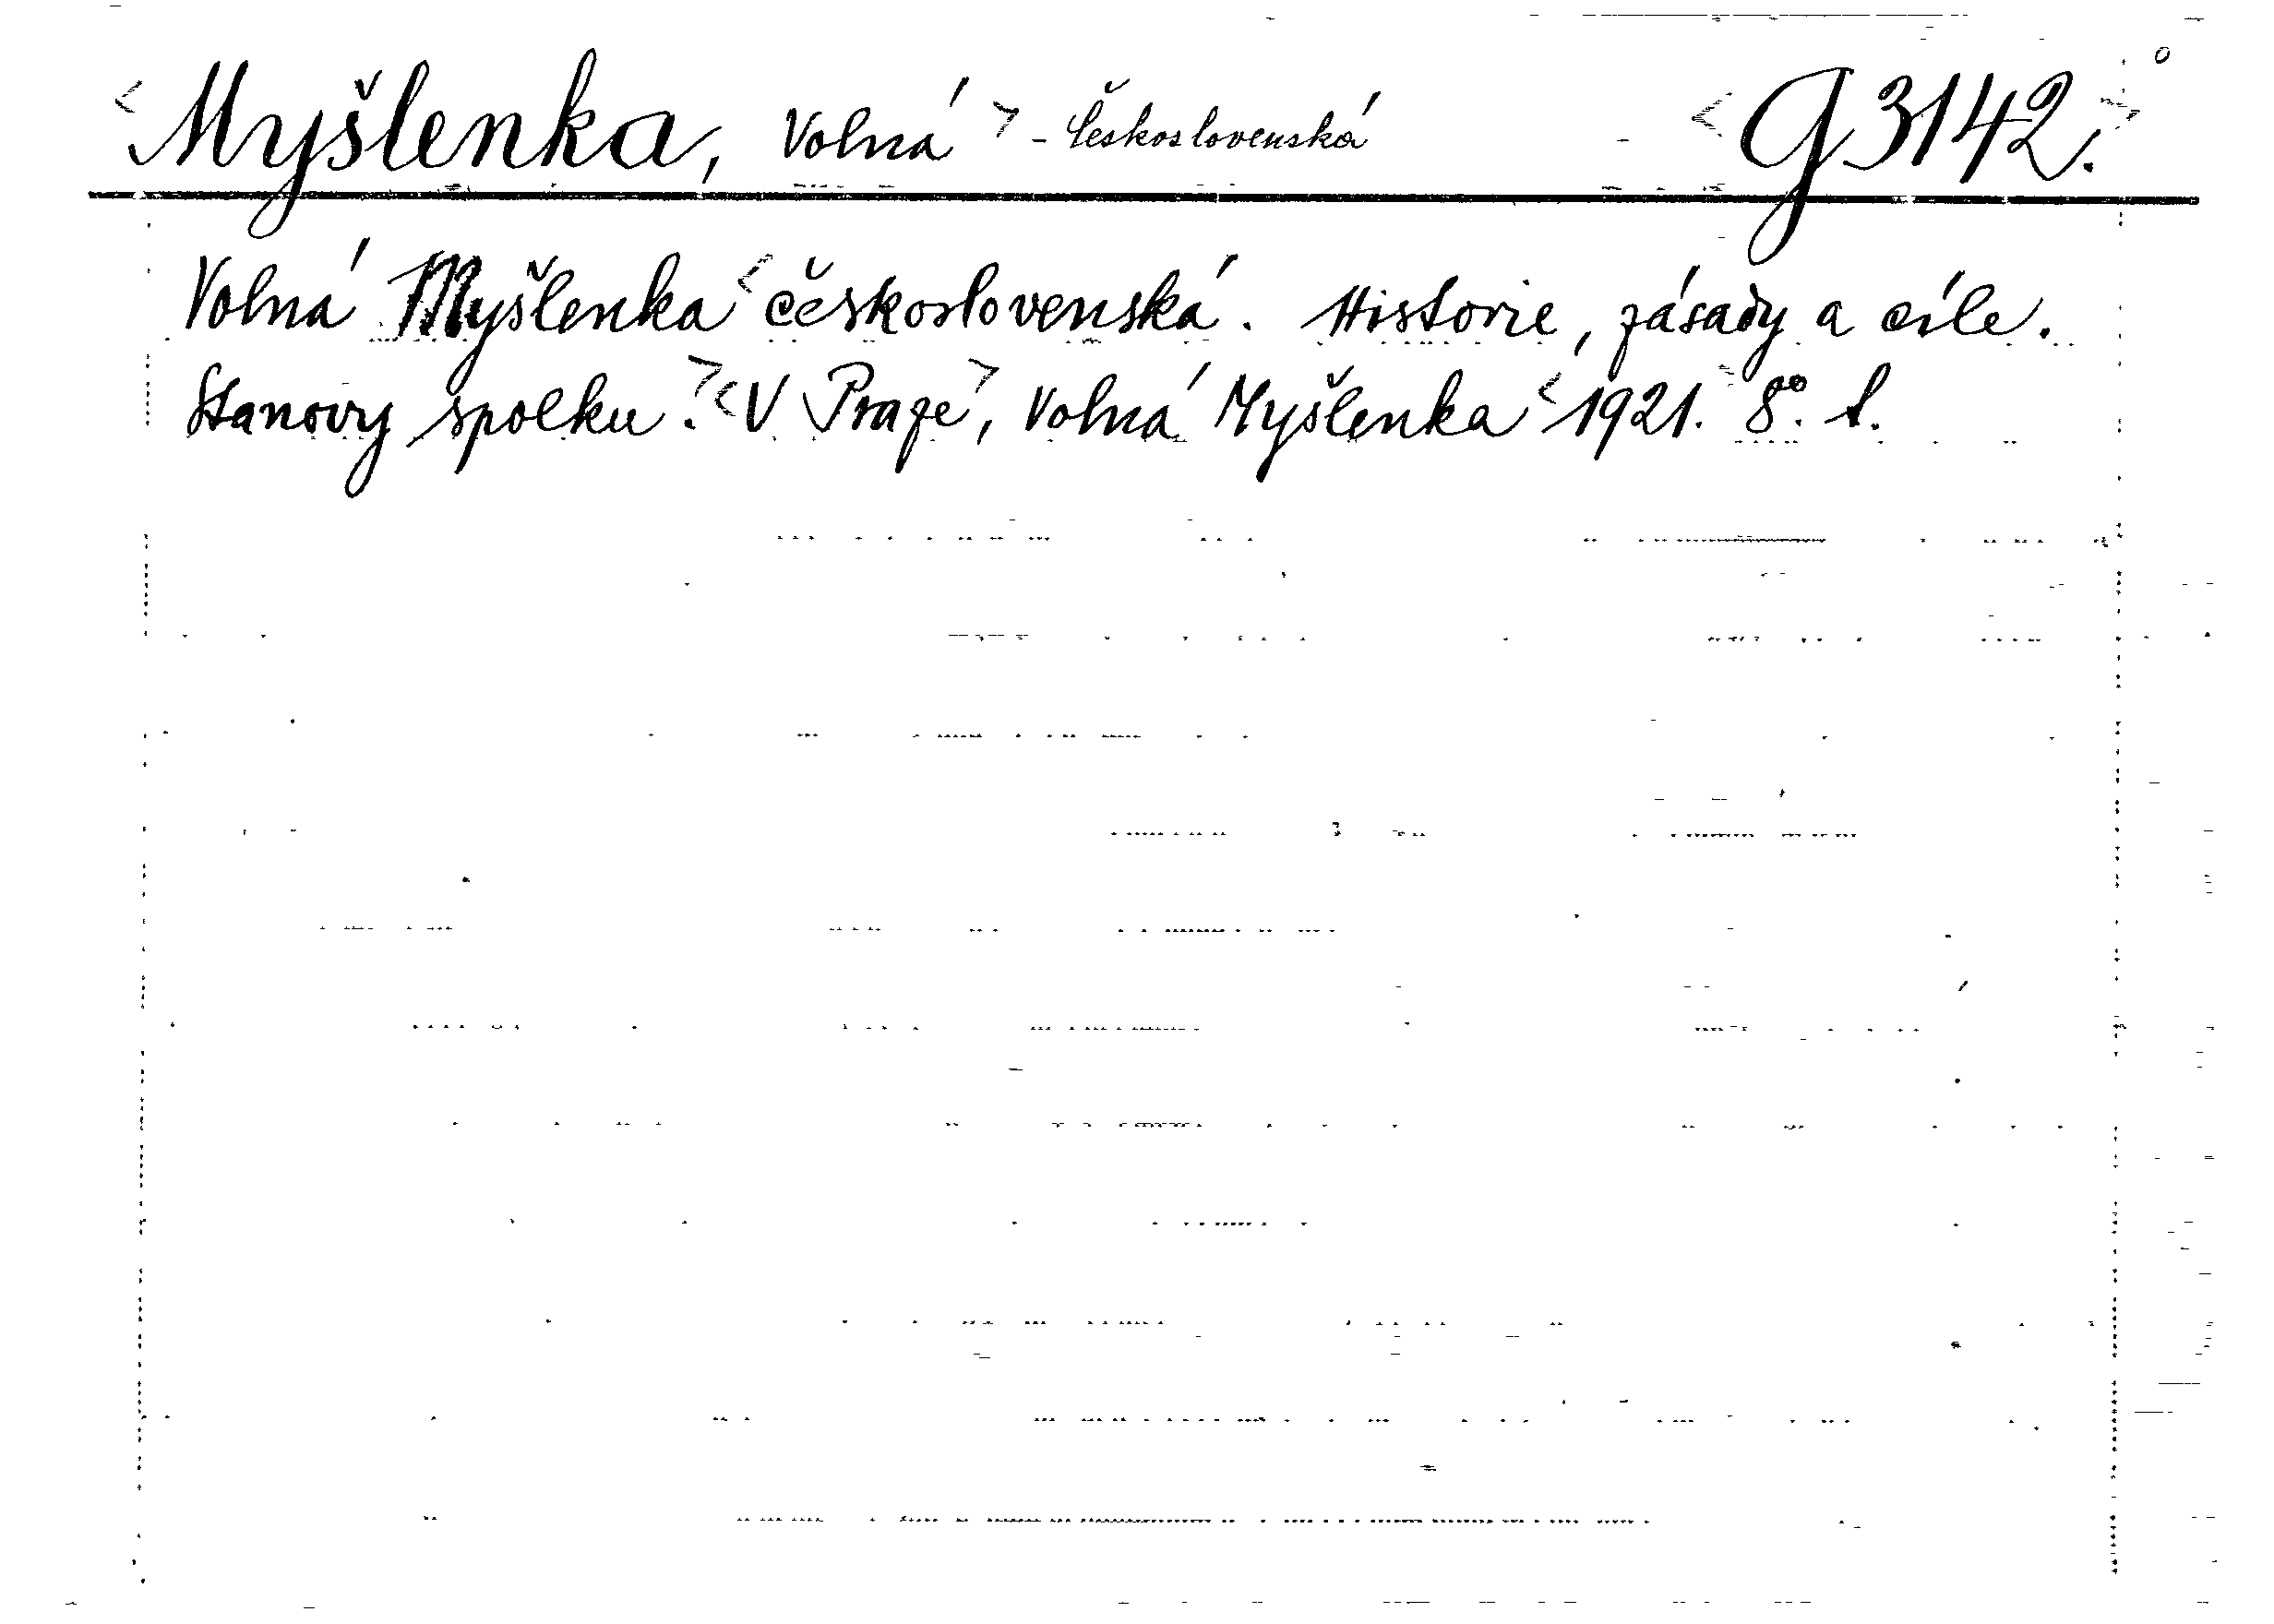 <Myšlenka, Volná> - Československá <G 3142.>
Volná Myšlenka <československá. Historie, zásady a cíle.
Stanovy spolku.> <V Praze>, Volná Myšlenka <1921. 8°. l.